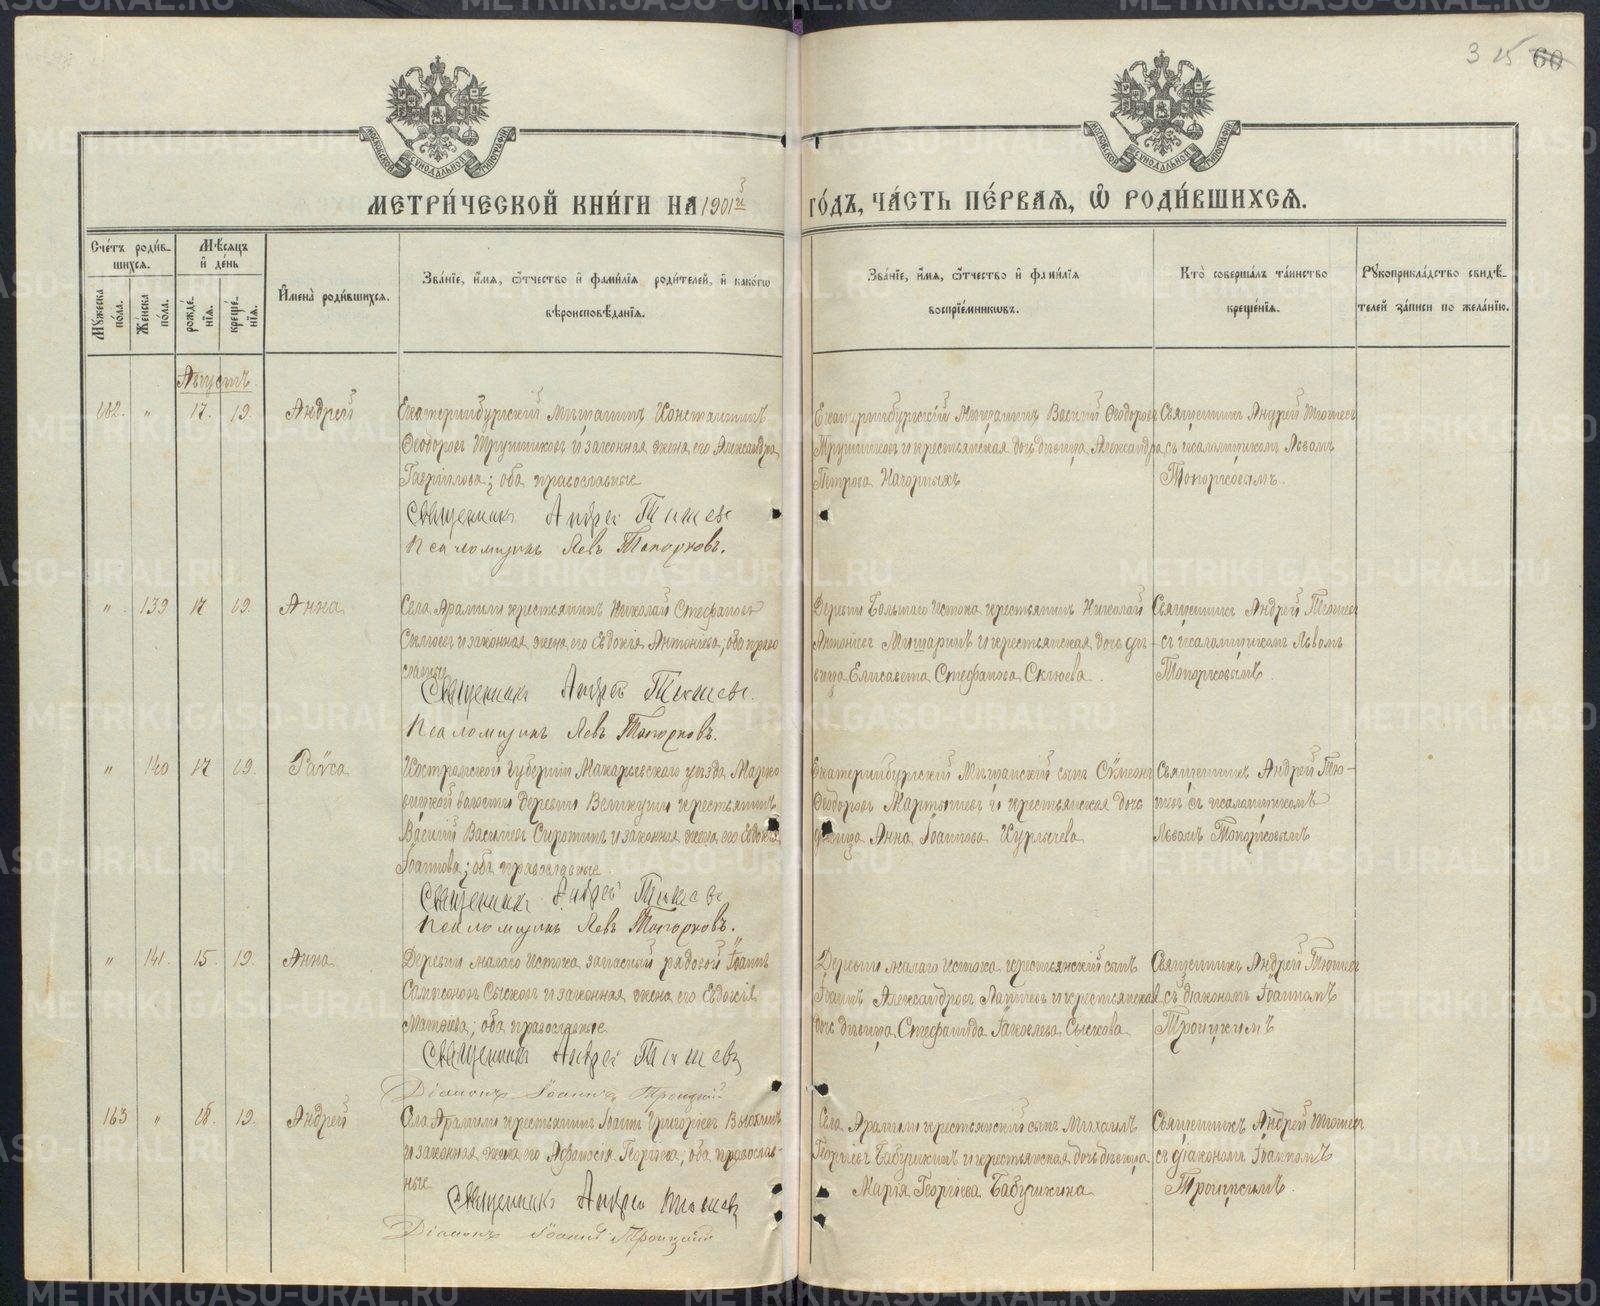 3 15 60
МОСКОВСКОЙ СѴНОДАЛЬНОЙ ТИПОГРАФІИ
МОСКОВСКОЙ СѴНОДАЛЬНОЙ ТИПОГРАФІИ
МЕТРИ́ЧЕСКОЙ КНИ́ГИ НА 1901й
ГО́ДЪ, ЧА́СТЬ ПЕ́РВАЯ, Ѡ҆ РОДИ́ВШИХСЯ.
Сче́тъ роди́в-
шихся.
Мѣ́сяцъ
и҆ де́нь
Мꙋ́жеска
по́ла.
Же́нска
по́ла.
рожде́-
нїя.
креще́-
нїя.
И҆мена̀ роди́вшихся.
Зва́нїе, и҆́мя, ѻ҆́тчество и҆ фами́лїя роди́телей, и҆ како́гѡ
вѣроисповѣ́данїя.
Зва́нїе, и҆́мя, ѻ҆́тчество и҆ фами́лїя
воспрїе́мникѡвъ.
Кто̀ соверша́лъ та́инство
креще́нїя.
Рꙋкоприкла́дство свидѣ́-
телей за́писи по жела́нїю.
Августъ
162. " 17. 19. Андрей
Екатеринбургскій Мѣщанинъ Константинъ
Ѳеодоровъ Трушниковъ и законная жена его Александра
Гавріилова; оба православные
Священникъ Андрей Тюшевъ
Псаломщикъ Левъ Топорковъ.
Екатеринбургскій Мѣщанинъ Василій Ѳеодоровъ
Трушниковъ и крестьянская дочь дѣвица Александра
Петрова Нагорныхъ
Священникъ Андрей Тюшевъ
съ псаломщикомъ Львомъ
Топорковымъ.
" 139 17 19. Анна
Села Арамили крестьянинъ Николай Стефановъ
и законная жена его Евдокія Антоніева; оба право
славные
Священникъ Андрей Тюшевъ.
Псаломщикъ Левъ Топорковъ.
Деревни Большаго Истока крестьянинъ Николай
Антоніевъ Мишаринъ и крестьянская дочь дѣ-
вица Елисавета Стефанова
Священникъ Андрей Тюшевъ
съ псаломщикомъ Львомъ
Топорковымъ.
" 140 17 19. Раиса
Костромской губерніи Макарьевскаго уѣзда
волости деревни крестьянинъ
Василій Васильевъ Сиротинъ и законная жена его Евдокія
Іоаннова; оба православные.
Священникъ Андрей Тюшевъ
Псаломщикъ Левъ Топорковъ.
Екатеринбургскій Мѣщанскій сынъ Сѵмеонъ
Ѳеодоровъ Мартыновъ и крестьянская дочь
дѣвица Анна Іоаннова
Священникъ Андрей Тю-
шевъ съ псаломщикомъ
Львомъ Топорковымъ
" 141. 15. 19. Анна
Деревни Малаго Истока запасный рядовой Іоаннъ
Сампсоновъ Сысковъ и законная жена его Евдокія
Матѳіева; оба православные
Священникъ Андрей Тюшевъ
Діаконъ Іоаннъ Троицкій
Деревни Малаго Истока крестьянскій сынъ
Іоаннъ Александровъ и крестьянская
дочь дѣвица Стефанида Іаковлева Сыскова
Священникъ Андрей Тюшевъ
съ діакономъ Іоанномъ
Троицкимъ
163 " 18. 19. Андрей
Села Арамили крестьянинъ Іоаннъ Григорьевъ
и законная жена его Аѳанасія Георгіева, оба православ-
ные
Священникъ Андрей Тюшевъ
Діаконъ Іоаннъ Троицкій
Села Арамили крестьянскій сынъ Михаилъ
Георгіевъ Бабушкинъ и крестьянская дочь дѣвица
Марія Георгіева Бабушкина
Священникъ Андрей Тюшевъ
съ діакономъ Іоанномъ
Троицкимъ.
METRIKI.GASO-URAL.RU